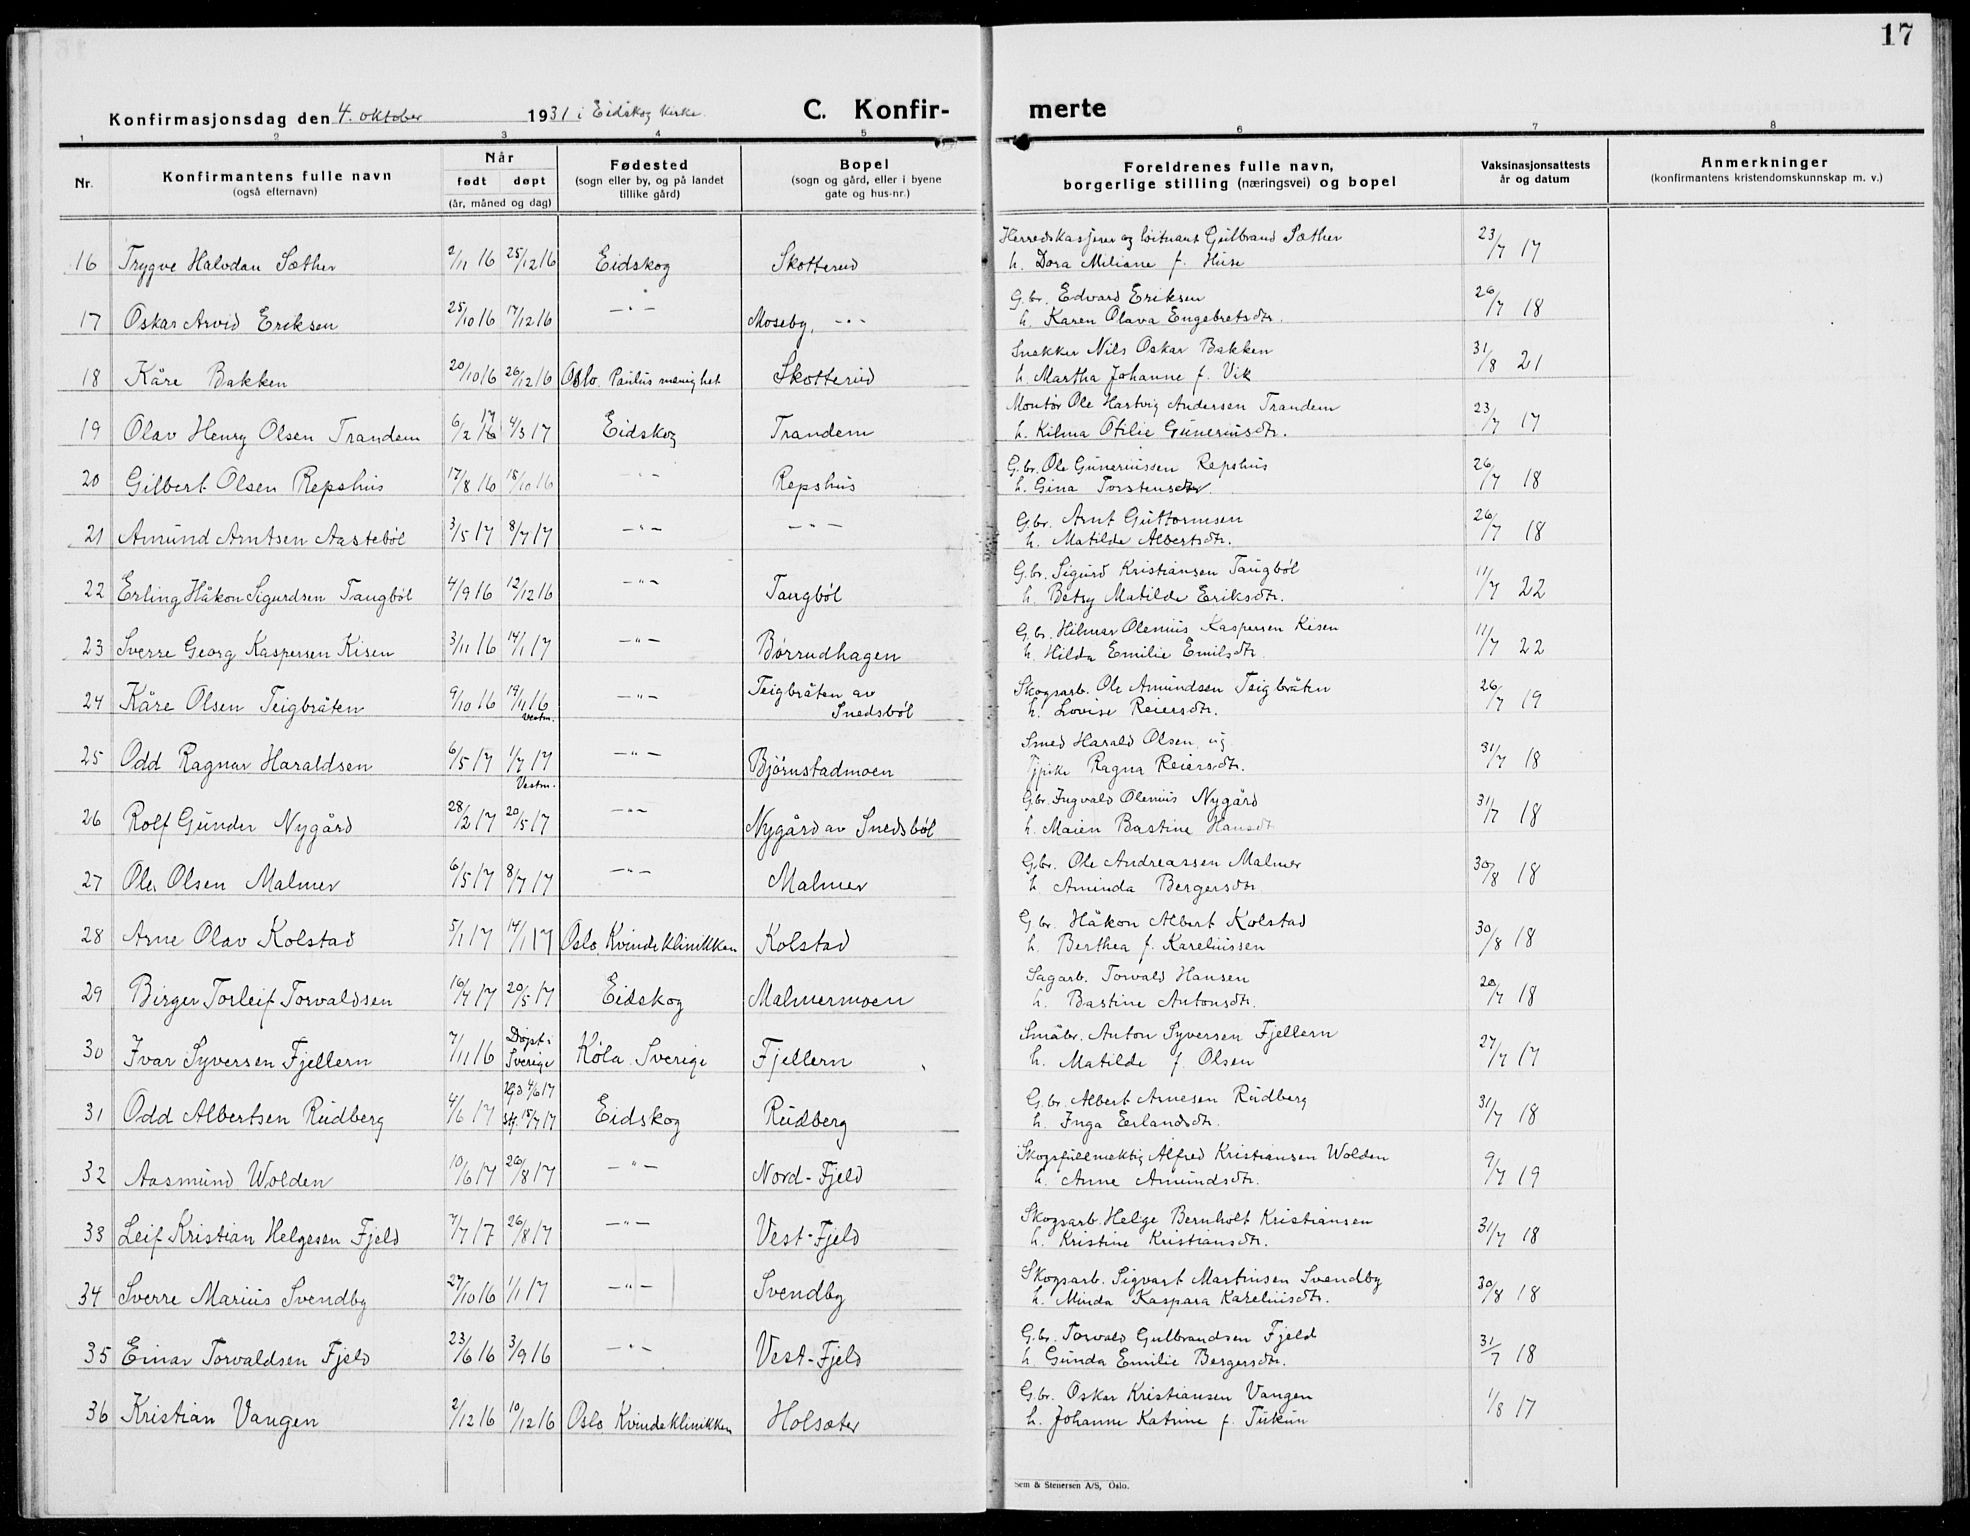 17
Konfirmasjonsdag den 4. oktober 1931 i Eidskog kirke.
C. Konfir-
merte
1 2 3 4 5 6 7 8
Nr.
Konfirmantens fulle navn
(også efternavn)
Når
født døpt
(år, måned og dag)
Fødested
(sogn eller by, og på landet
tillike gård)
Bopel
(sogn og gård, eller i byene
gate og hus-nr.)
Foreldrenes fulle navn,
borgerlige stilling (næringsvei) og bopel
Vaksinasjonsattests
år og datum
Anmerkninger
(konfirmantens kristendomskunnskap m. v.)
Herredskasjerer og løitnant Gulbrand Sæther
16 Trygve Halvdan Sæther 2/11 16 25/12 16 Eidskog Skotterud h. Dora Miliane f. Huse 23/7 17
G.br. Edvard Eriksen
17 Oskar Arvid Eriksen 25/10 16 17/12 16 -"- Moseby, -"- h. Karen Olava Engebretsdtr. 26/7 18
Snekker Nils Oskar Bakken
18 Kåre Bakken 20/10 16 26/12 16 Oslo. Paulus menighet Skotterud h. Martha Johanne f. Vik 31/8 21
Montør Ole Hartvig Andersen Trandem
19 Olav Henry Olsen Trandem 6/2 16 17 4/3 17 Eidskog Trandem h. Kilma Otilie Guneriusdtr. 23/7 17
G.br. Ole Gunerиussen Repshus
20 Gilbert Olsen Repshus 17/8 16 15/10 16 -"- Repshus h. Gina Torstensdtr. 26/7 18
G.br. Arnt Guttormsen
21 Amund Arntsen Aastebøl 3/5 17 8/7 17 -"- -"- h. Matilde Albertsdtr. 26/7 18
G.br. Sigurd Kristiansen Taugbøl
22 Erling Håkon Sigurdsen Taugbøl 4/9 16 12/12 16 -"- Taugbøl h. Betsy Matilde Eriksdtr. 11/7 22
G.br. Hilmar Olenius Kaspersen Kisen
23 Sverre Georg Kaspersen Kisen 3/11 16 14/1 17 -"- Børrudhagen h. Hilda Emilie Emilsdtr. 11/7 22
Teigbråten av Skogsarb. Ole Amundsen Teigbråten
24 Kåre Olsen Teigbråten 9/10 16 19/11 16 Vestm. -"- Snedsbøl h. Lovise Reiersdtr. 26/7 19
Smed Harald Olsen og
25 Odd Ragnar Haraldsen 6/5 17 1/7 17 Vestm. -"- Bjørnstadmoen Tjpike Ragna Reiersdtr. 31/7 18
G.br. Ingvald Olenius Nygård
26 Rolf Gunder Nygård 28/2 17 20/5 17 -"- Nygård av Snedsbøl h. Maien Bastine Hansdt 31/7 18
G.br. Ole Andreassen Malmer
27 Ole Olsen Malmer 6/5 17 8/7 17 -"- Malmer h. Aminda Bergersdtr. 30/8 18
G.br. Håkon Albert Kolstad
28 Arne Olav Kolstad 5/1 17 14/1 17 Oslo, Kvindeklinikken Kolstad h. Berthea f. Kareliussen 30/8 18
Sagarb. Torvald Hansen
29 Birger Torleif Torvaldsen 16/4 17 20/5 17 Eidskog Malmermoen h. Bastine Antonsdtr. 20/7 18
Småbr. Anton Syversen Fjellern
30 Ivar Syversen Fjellern 7/11 16 Døpt i Sverige Köla. Sverige Fjellern h. Matilde f. Olsen 27/7 17
G.br. Albert Arnesen Rudberg
31 Odd Albertsen Rudberg 4/6 17 Hjd 4/6 17 Stf. 15/7 17 Eidskog Rudberg h. Inga Erlandsdtr. 31/7 18
Skogsfullmektig Alfred Kristiansen Wolden
32 Aasmund Wolden 10/6 17 26/8 17 -"- Nord-Fjeld h. Anne Amundsdtr. 9/7 19
Skogsarb. Helge Bernholt Kristiansen
33 Leif Kristian Helgesen Fjeld 7/7 17 26/8 17 -"- Vest-Fjeld h. Kristine Kristiansdtr. 31/7 18
Skogsarb. Sigvart Martinsen Svendby
34 Sverre Marius Svendby 27/10 16 1/1 17 -"- Svendby h. Minda Kaspara Kareliusdtr. 30/8 18
G.br. Torvald Gulbrandsen Fjeld
35 Einar Torvaldsen Fjeld 23/6 16 3/9 16 -"- Vest-Fjeld h. Gunda Emilie Bergersdtr. 31/7 18
G.br. Oskar Kristiansen Vangen
36 Kristian Vangen 2/12 16 10/12 16 Oslo Kvindeklinikken Holsæter h. Johanne Katrine f. Tukun 1/8 17
Sem & Stenersen A/S, Oslo.